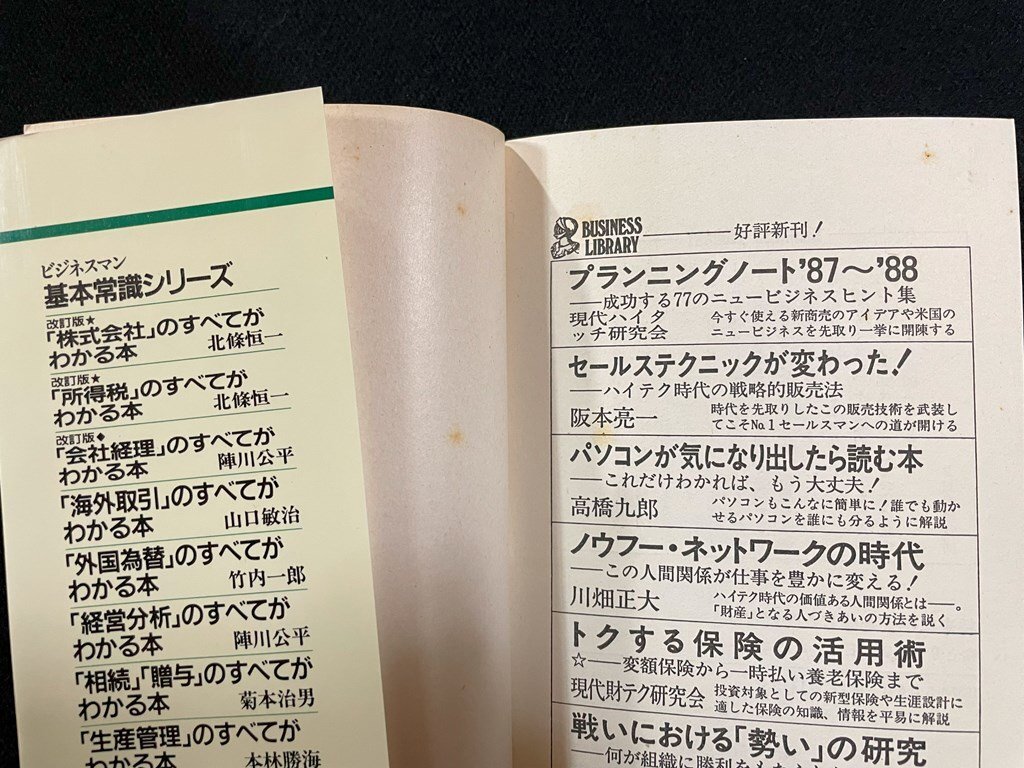 ビジネスマン
基本常識シリーズ
改訂版★
「株式会社」のすべてが
わかる本 北條恒一
改訂版★
「所得税」のすべてが
わかる本 北條恒一
改訂版◆
「会社経理」のすべてが
わかる本 陣川公平
「海外取引」のすべてが
わかる本 山口敏治
「外国為替」のすべてが
わかる本 竹内一郎
「経営分析」のすべてが
わかる本 陣川公平
「相続」「贈与」のすべてが
わかる本 菊本治男
「生産管理」のすべてが
わかる本 本林勝海
BUSINESS
LIBRARY
好評新刊!
プランニングノート'87〜'88
――成功する77のニュービジネスヒント集
現代ハイタ
ッチ研究会
今すぐ使える新商売のアイデアや米国の
ニュービジネスを先取り一挙に開陳する
セールステクニックが変わった!
――ハイテク時代の戦略的販売法
阪本亮一
時代を先取りしたこの販売技術を武装し
てこそNo.1セールスマンへの道が開ける
パソコンが気になり出したら読む本
――これだけわかれば、もう大丈夫!
高橋九郎
パソコンもこんなに簡単に!誰でも動か
せるパソコンを誰にも分るように解説
ノウフー・ネットワークの時代
――この人間関係が仕事を豊かに変える!
川畑正大
ハイテク時代の価値ある人間関係とは――。
「財産」となる人づきあいの方法を説く
トクする保険の活用術
☆――変額保険から一時払い養老保険まで
現代財テク研究会
投資対象としての新型保険や生涯設計に
適した保険の知識、情報を平易に解説
戦いにおける「勢い」の研究
――何が組織に勝利をもたらす